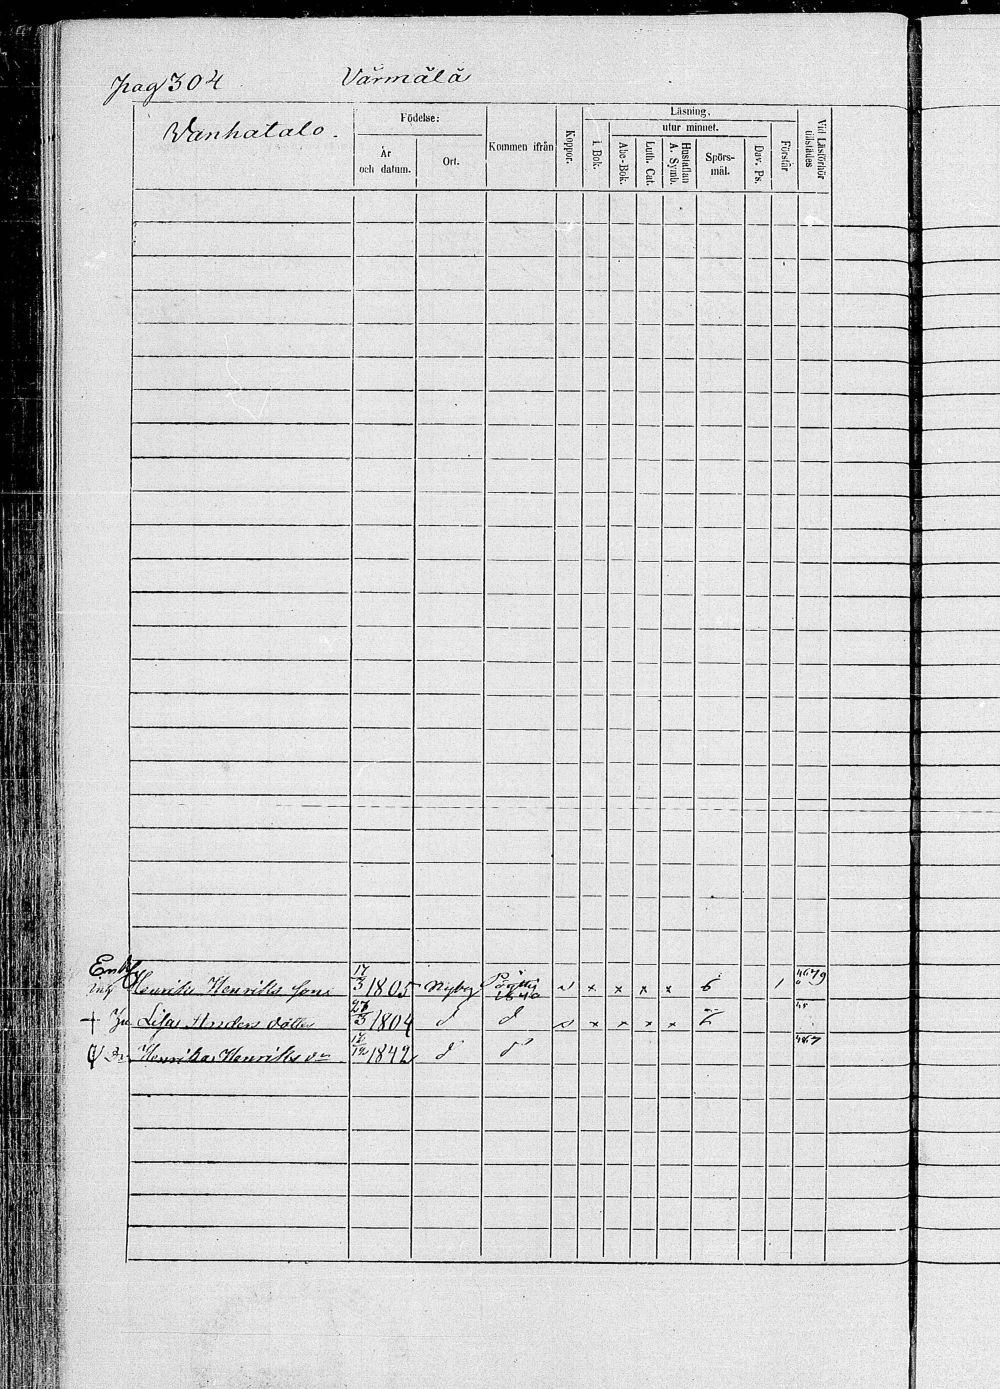 pag 304 Värmälä
Wanhatalo.
Födelse:
År och datum.
Ort.
Kommen ifrån
Koppor.
Läsning,
i Bok.
utur minnet.
Abc-Bok.
Luth. Cat.
Hustaflan A. Symb.
Spörs-mål.
Dav. Ps.
Förstår
Vid Läsförhör tillstädes
Enkl
inh Henrik Henriks son 17/3 1805 Nyby 1840 v x x x x 6 1
+ Lisa Anders dotter 27/3 1804 d d v x x x x
Henrika Henriks dr 1842 d d